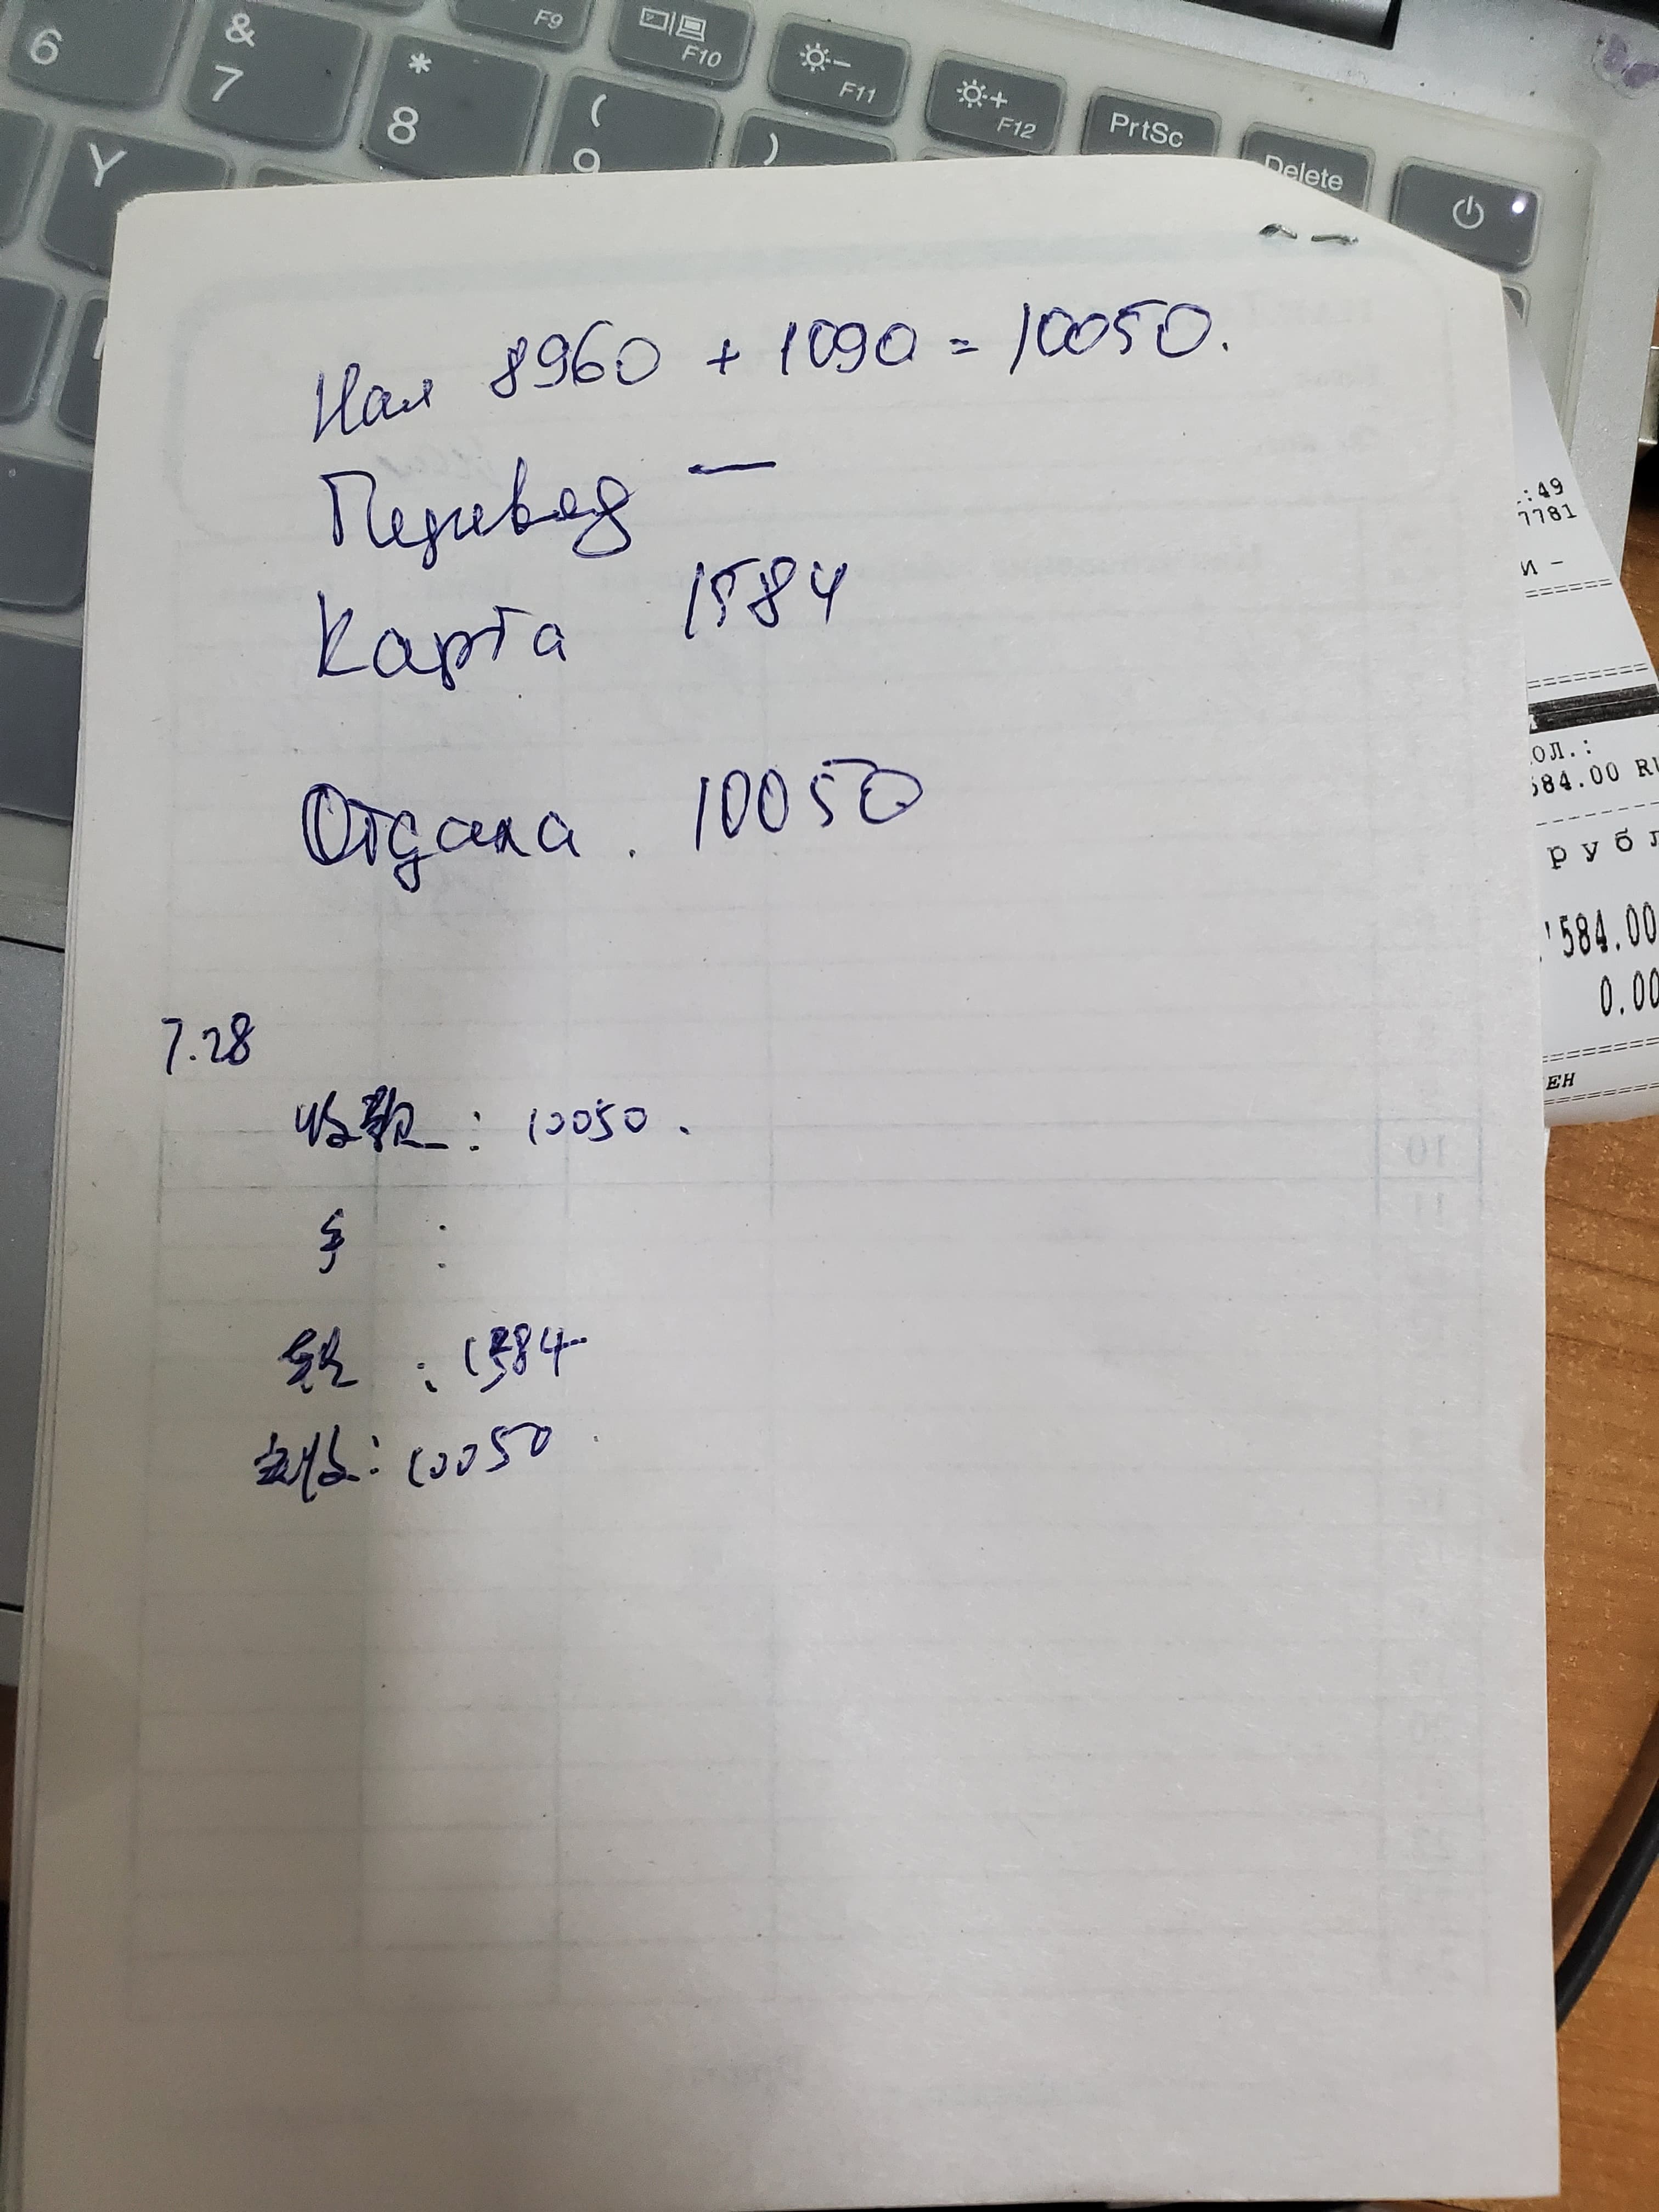 6
&
7
*
8
(
9
)
F9
F10
F11
F12
PrtSc
Delete
Y
Нал 8960 + 1090 = 10050.
Перевод —
Карта 1584
Отдала . 10050
7.28
收款 : 10050 .
:
: 1584
收 : 10050
:49
7781
И -
ОЛ.:
584.00 RU
рубл
584.00
0.00
ЕН
10
11